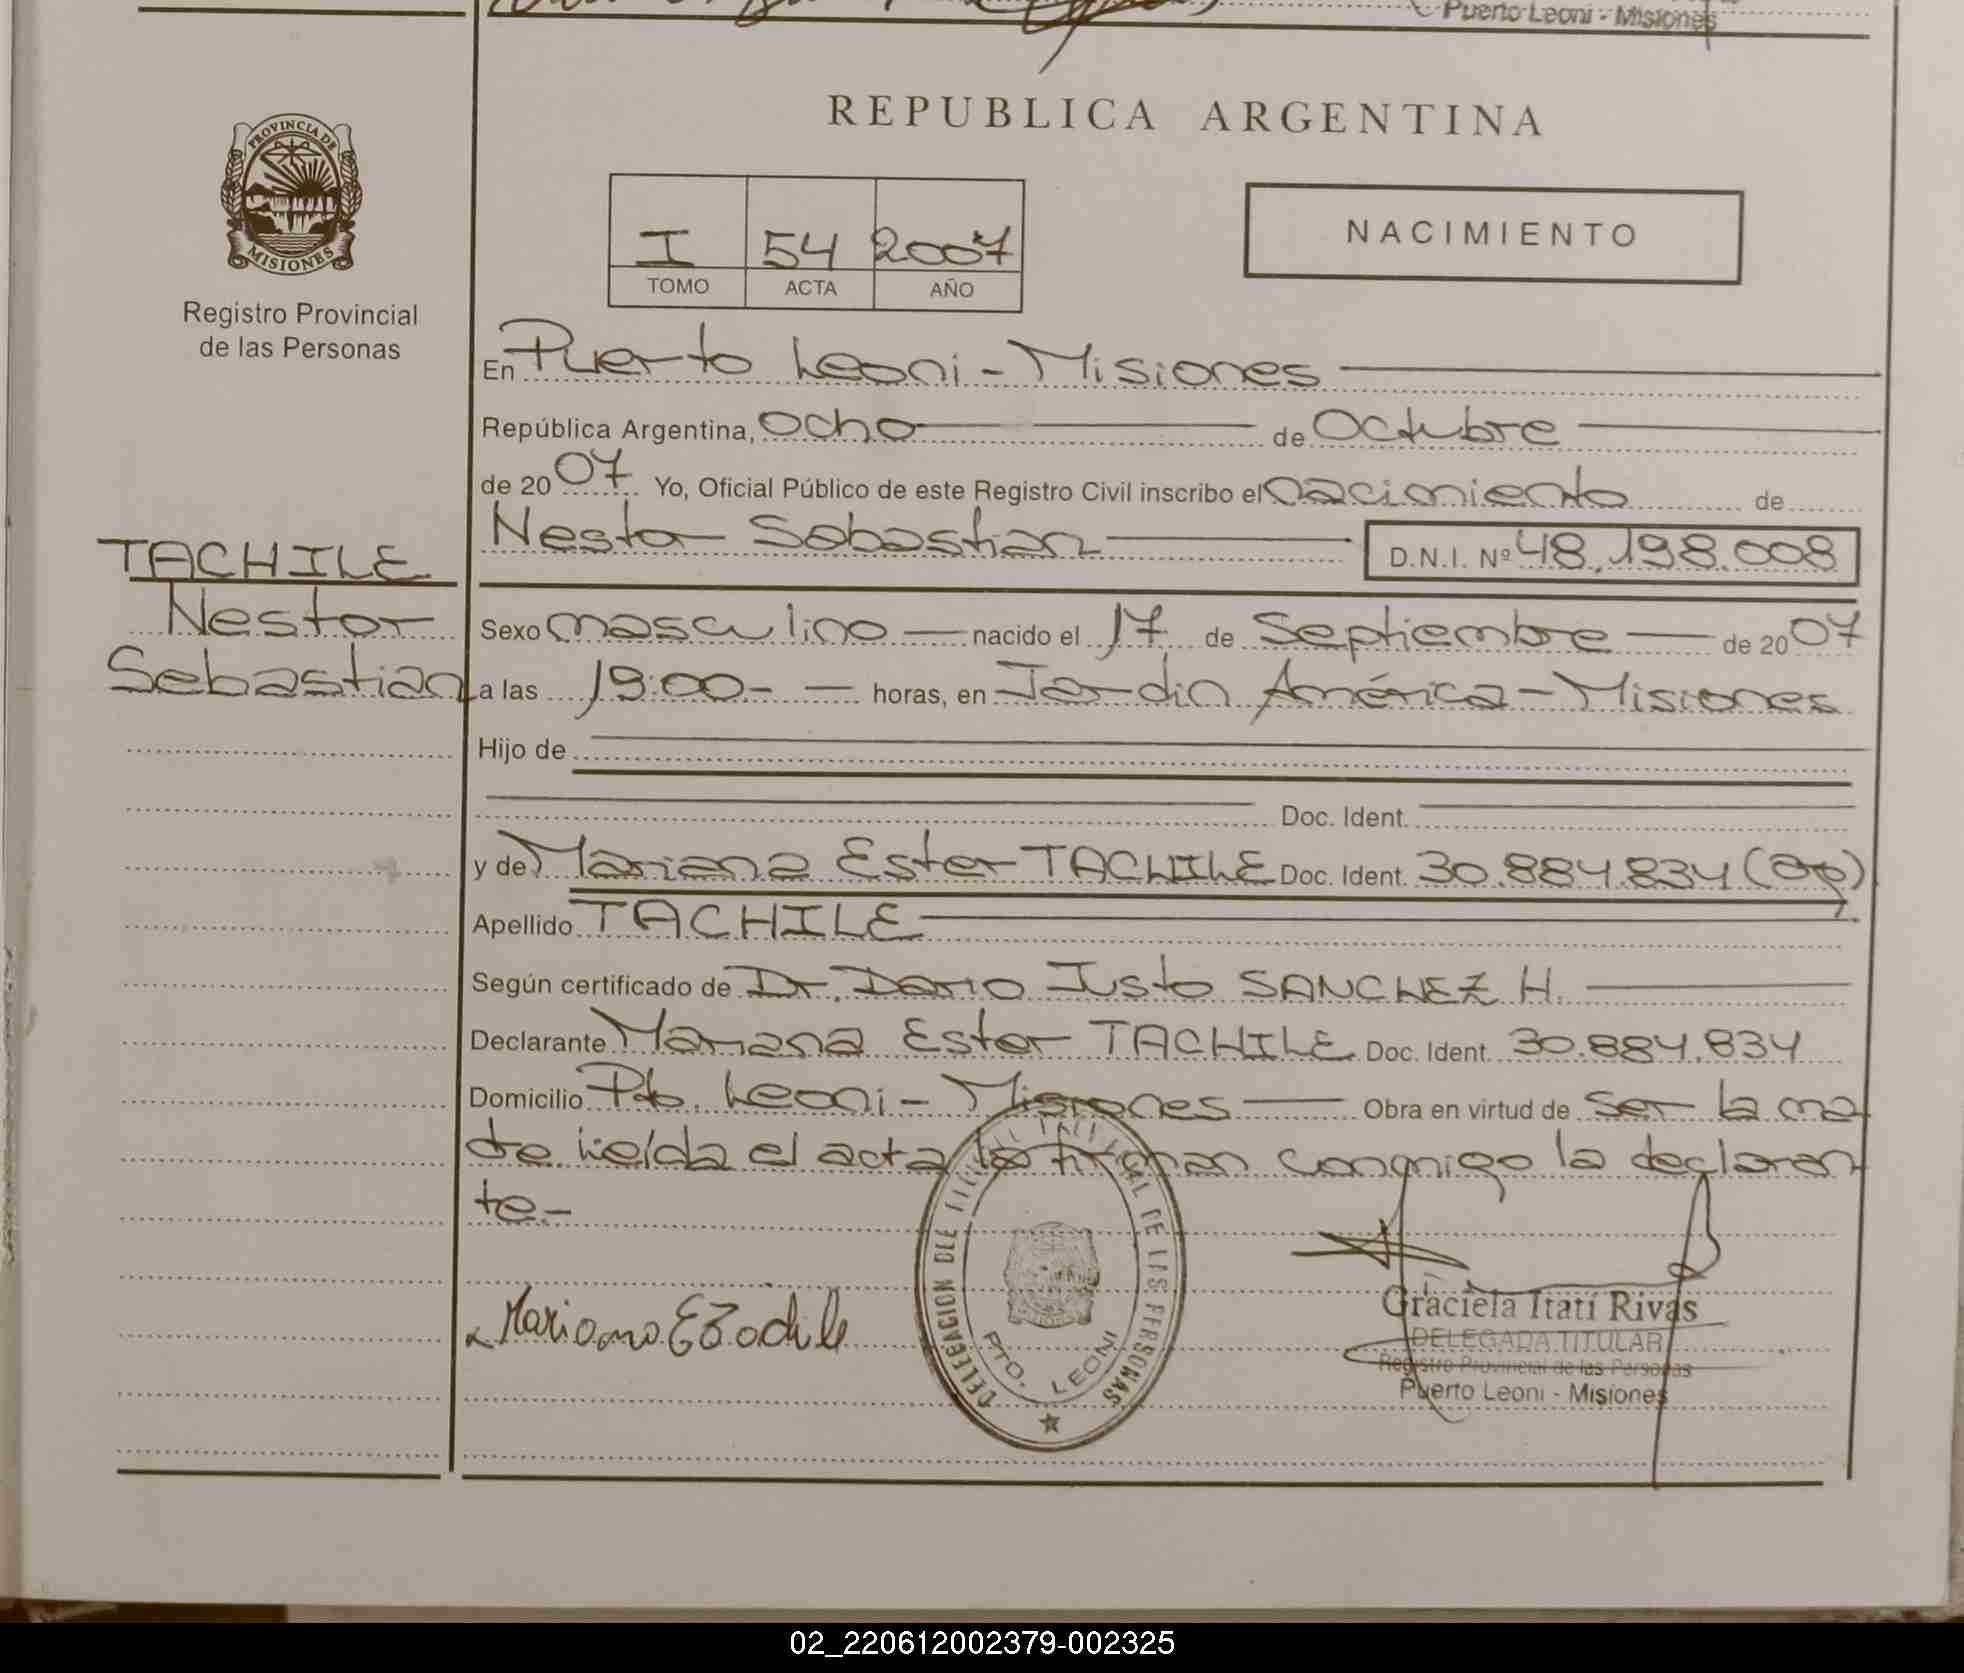 Puerto Leoni - Misiones
REPUBLICA ARGENTINA
PROVINCIA DE
MISIONES
Registro Provincial
de las Personas
I 54 2007
TOMO ACTA AÑO
NACIMIENTO
En Puerto Leoni - Misiones
República Argentina, ocho de Octubre
de 2007 Yo, Oficial Público de este Registro Civil inscribo el nacimiento de
Nestor Sebastian D.N.I. Nº 48.198.008
TACHILE
Nestor
Sebastian
Sexo masculino nacido el 17 de Septiembre de 2007
a las 19:00- horas, en Jardin América - Misiones
Hijo de
Doc. Ident.
y de Mariana Ester TACHILE Doc. Ident. 30.884.834
Apellido TACHILE
Según certificado de Dr. Dario Justo SANCHEZ H.
Declarante Mariana Ester TACHILE Doc. Ident. 30.884.834
Domicilio Pto. Leoni - Misiones Obra en virtud de ser la ma
dre leída el acta la firman conmigo la declaran
te.-
PTO. LEONI
Graciela Itatí Rivas
DELEGADA TITULAR
Registro Provincial de las Personas
Puerto Leoni - Misiones
02_220612002379-002325